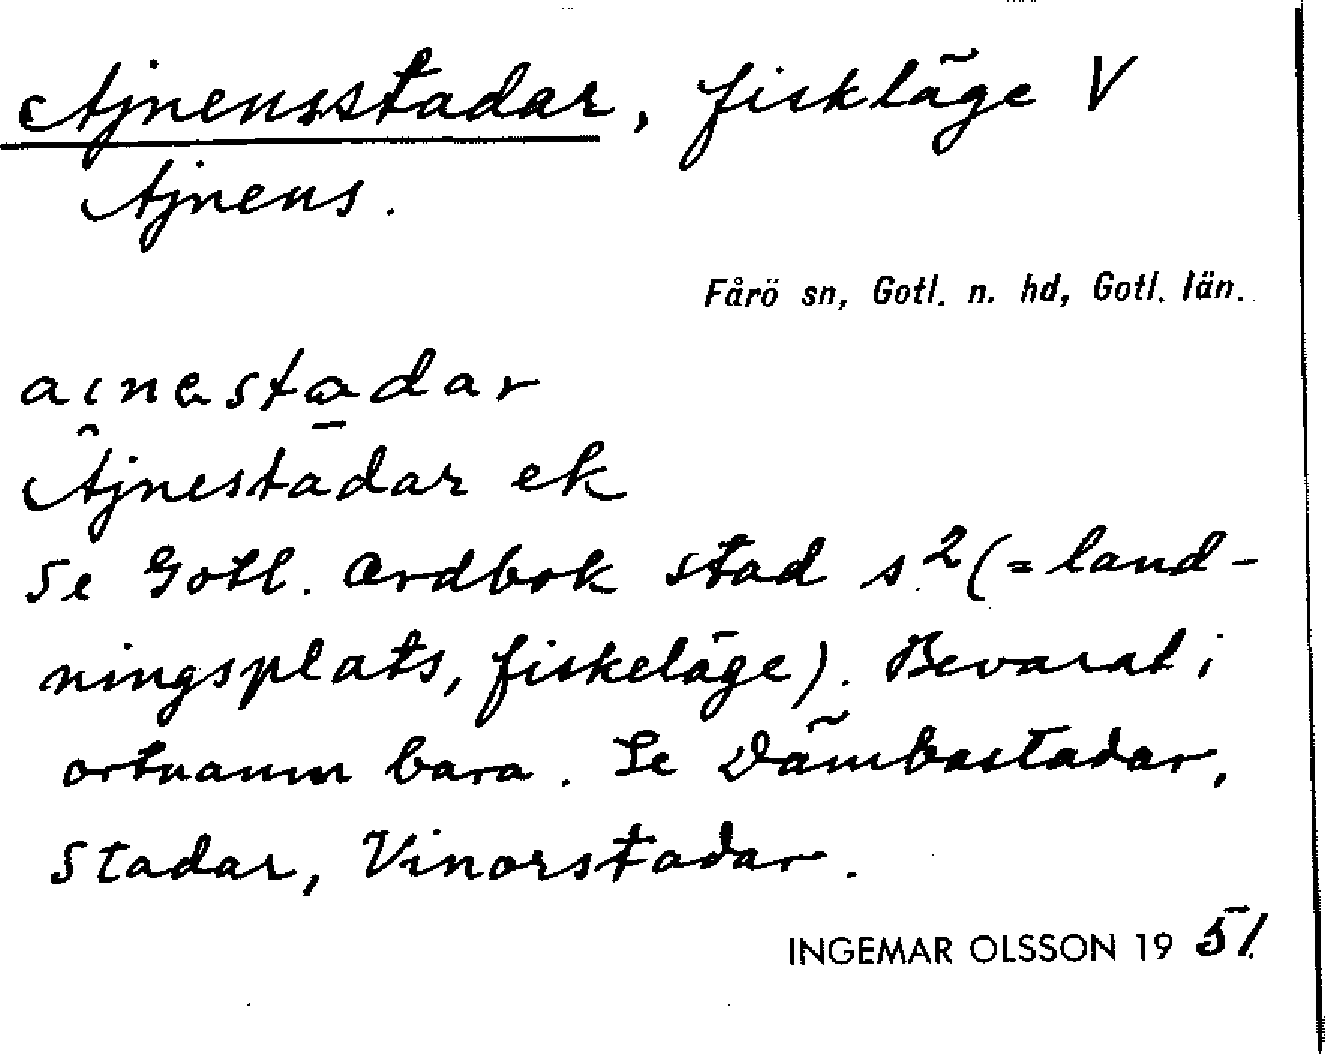 Ajnensstadar, fiskläge V
Ajnens.
Fårö sn, Gotl. n. hd, Gotl. län.
ai̯nestādar
Ajnestadar ek
Se Gotl. ordbok stad s.2 (= land-
ningsplats, fiskeläge). Bevarat i
ortnamn bara. Se Dämbastadar,
Stadar, Vinorstadar.
INGEMAR OLSSON 19 51